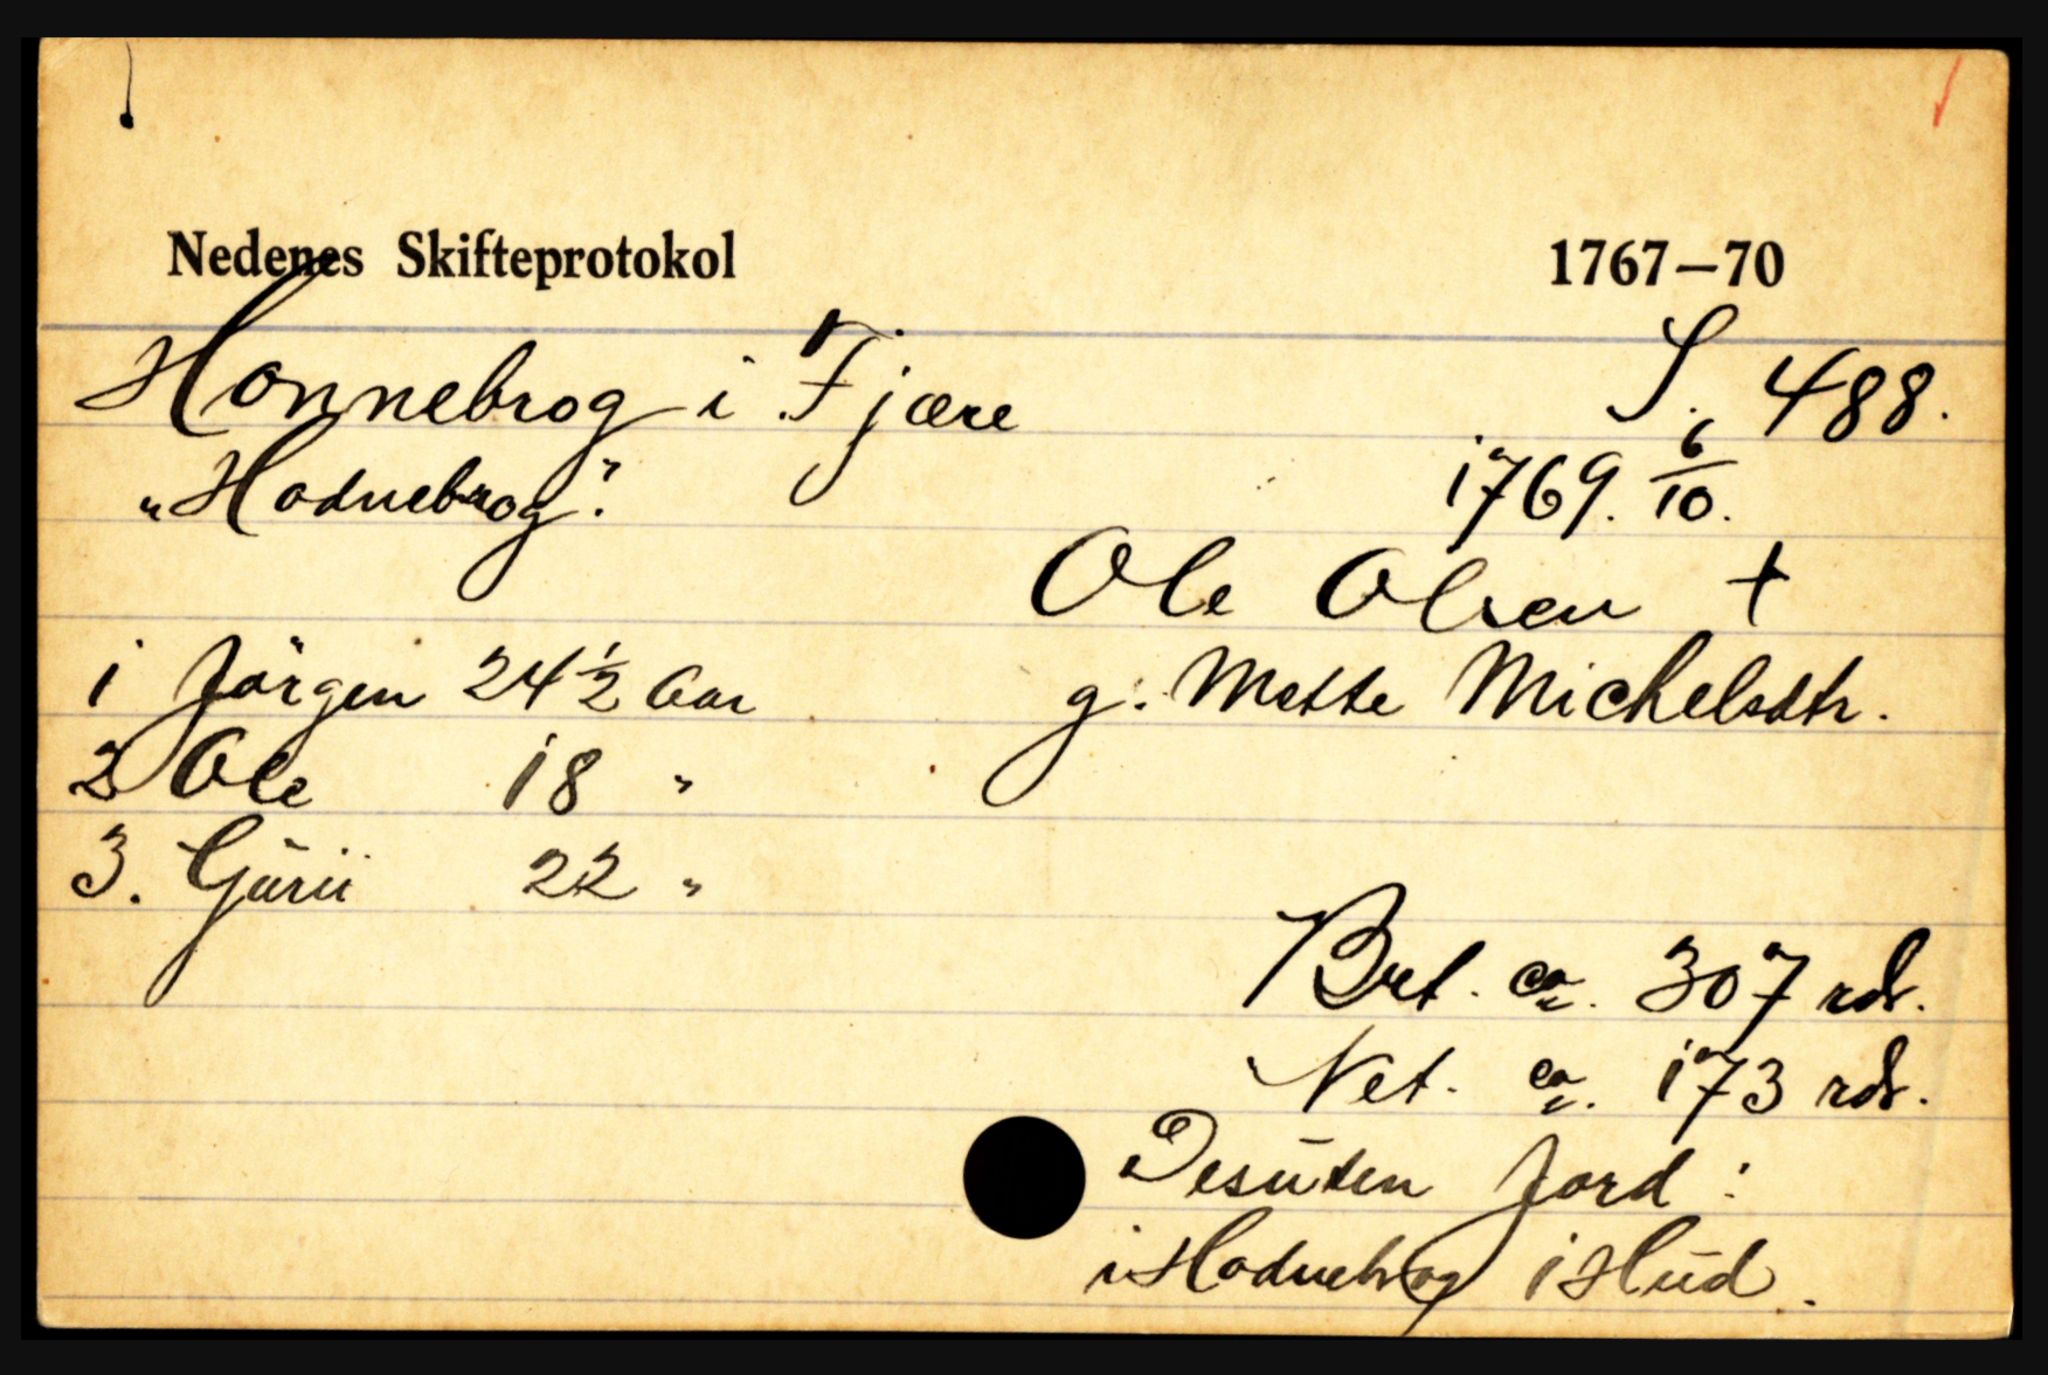 Nedenes Skifteprotokol 1767–70
Honnebrog i Fjære S. 488.
„Hodnebrog". 1769. 6/10.
Ole Olsen †
1 Jörgen 24 ½ Aar g. Mette Michelsdtr.
2 Ole 18 "
3. Gurii 22 "
Brt. ca. 307 rdr.
Net. ca. 173 rdr.
Desuten Jord :
i Hodnebrog 1 Hud.